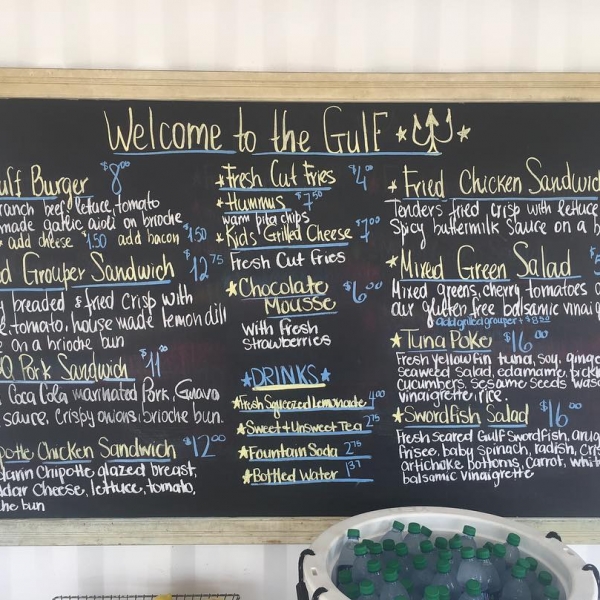 Welcome to the Gulf
Burger $8.00
ranch beef, lettuce, tomato
made garlic aioli on brioche
add cheese $1.50 add bacon $1.50
Grouper Sandwich $12.75
breaded & fried crisp with
tomato, house made lemon dill
on a brioche bun
Pork Sandwich $11.00
Coca Cola marinated Pork, Guava
sauce, crispy onions, brioche bun.
Chicken Sandwich $12.00
Chipotle glazed breast,
Cheese, lettuce, tomato,
bun
Fresh Cut Fries $4.00
Hummus $7.50
warm pita chips
Kid's Grilled Cheese $7.00
Fresh Cut Fries
Chocolate $6.00
Mousse
with Fresh
strawberries
DRINKS
Fresh Squeezed Lemonade 4.00
Sweet & Unsweet Tea 2.75
Fountain Soda 2.75
Bottled Water 1.37
Fried Chicken Sandwich
Tenders fried crisp with lettuce
Spicy buttermilk sauce on a
Mixed Green Salad
Mixed greens, cherry tomatoes
our gluten free balsamic
add grilled grouper + $8.50
Tuna Poke $16.00
Fresh yellowfin tuna, soy,
seaweed salad, edamame,
cucumbers, sesame seeds
vinaigrette, rice.
Swordfish Salad $16.00
Fresh seared Gulf Swordfish,
frisee, baby spinach, radish,
artichoke bottoms, carrot,
balsamic vinaigrette